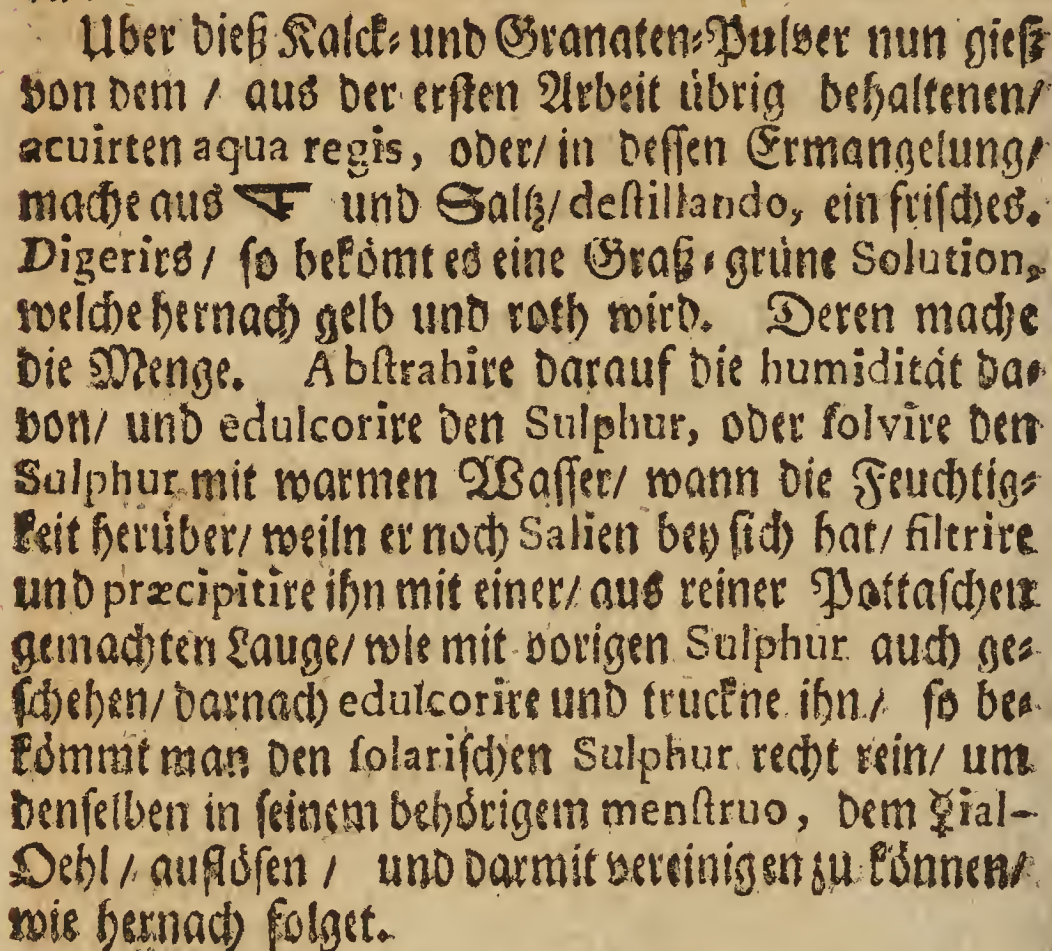 Uber dieß Kalck- und Granaten-Pulver nun gieß
von dem / aus der ersten Arbeit übrig behaltenen/
acuirten aqua regis, oder/ in dessen Ermangelung/
mache aus 🜅 und Saltz/ destillando, ein frisches.
Digerirs / so bekömt es eine Graß-grüne Solution,
welche hernach gelb und roth wird. Deren mache
die Menge. Abstrahire darauf die humidität da-
von/ und edulcorire den Sulphur, oder solvire den
Sulphur mit warmen Wasser/ wann die Feuchtig-
keit herüber/ weiln er noch Salien bey sich hat/ filtrire
und præcipitire ihn mit einer/ aus reiner Pottaschen
gemachten Lauge/ wie mit vorigen Sulphur auch ge-
schehen/ darnach edulcorire und truckne ihn / so be-
kömmt man den solarischen Sulphur recht rein/ um
denselben in seinem behörigem menstruo, dem ☿ial-
Oehl / auflösen / und darmit vereinigen zu können/
wie hernach folget.